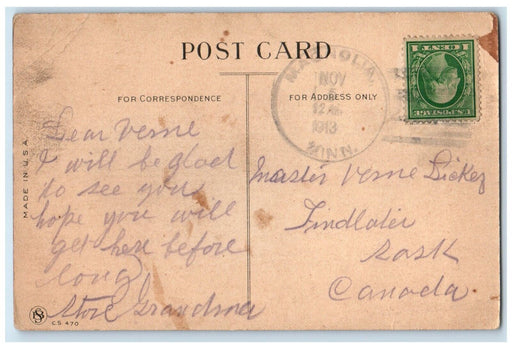 POST CARD
FOR CORRESPONDENCE
FOR ADDRESS ONLY
MAGNOLIA,
NOV
12
1913
MINN.
1 CENT 1
U.S.POSTAGE
MADE IN U.S.A.
Dear Verne
I will be glad
to see you
hope you will
get here before
long
Grandma
Master Verne
Findlater
Sask
Canada.
C.S. 470